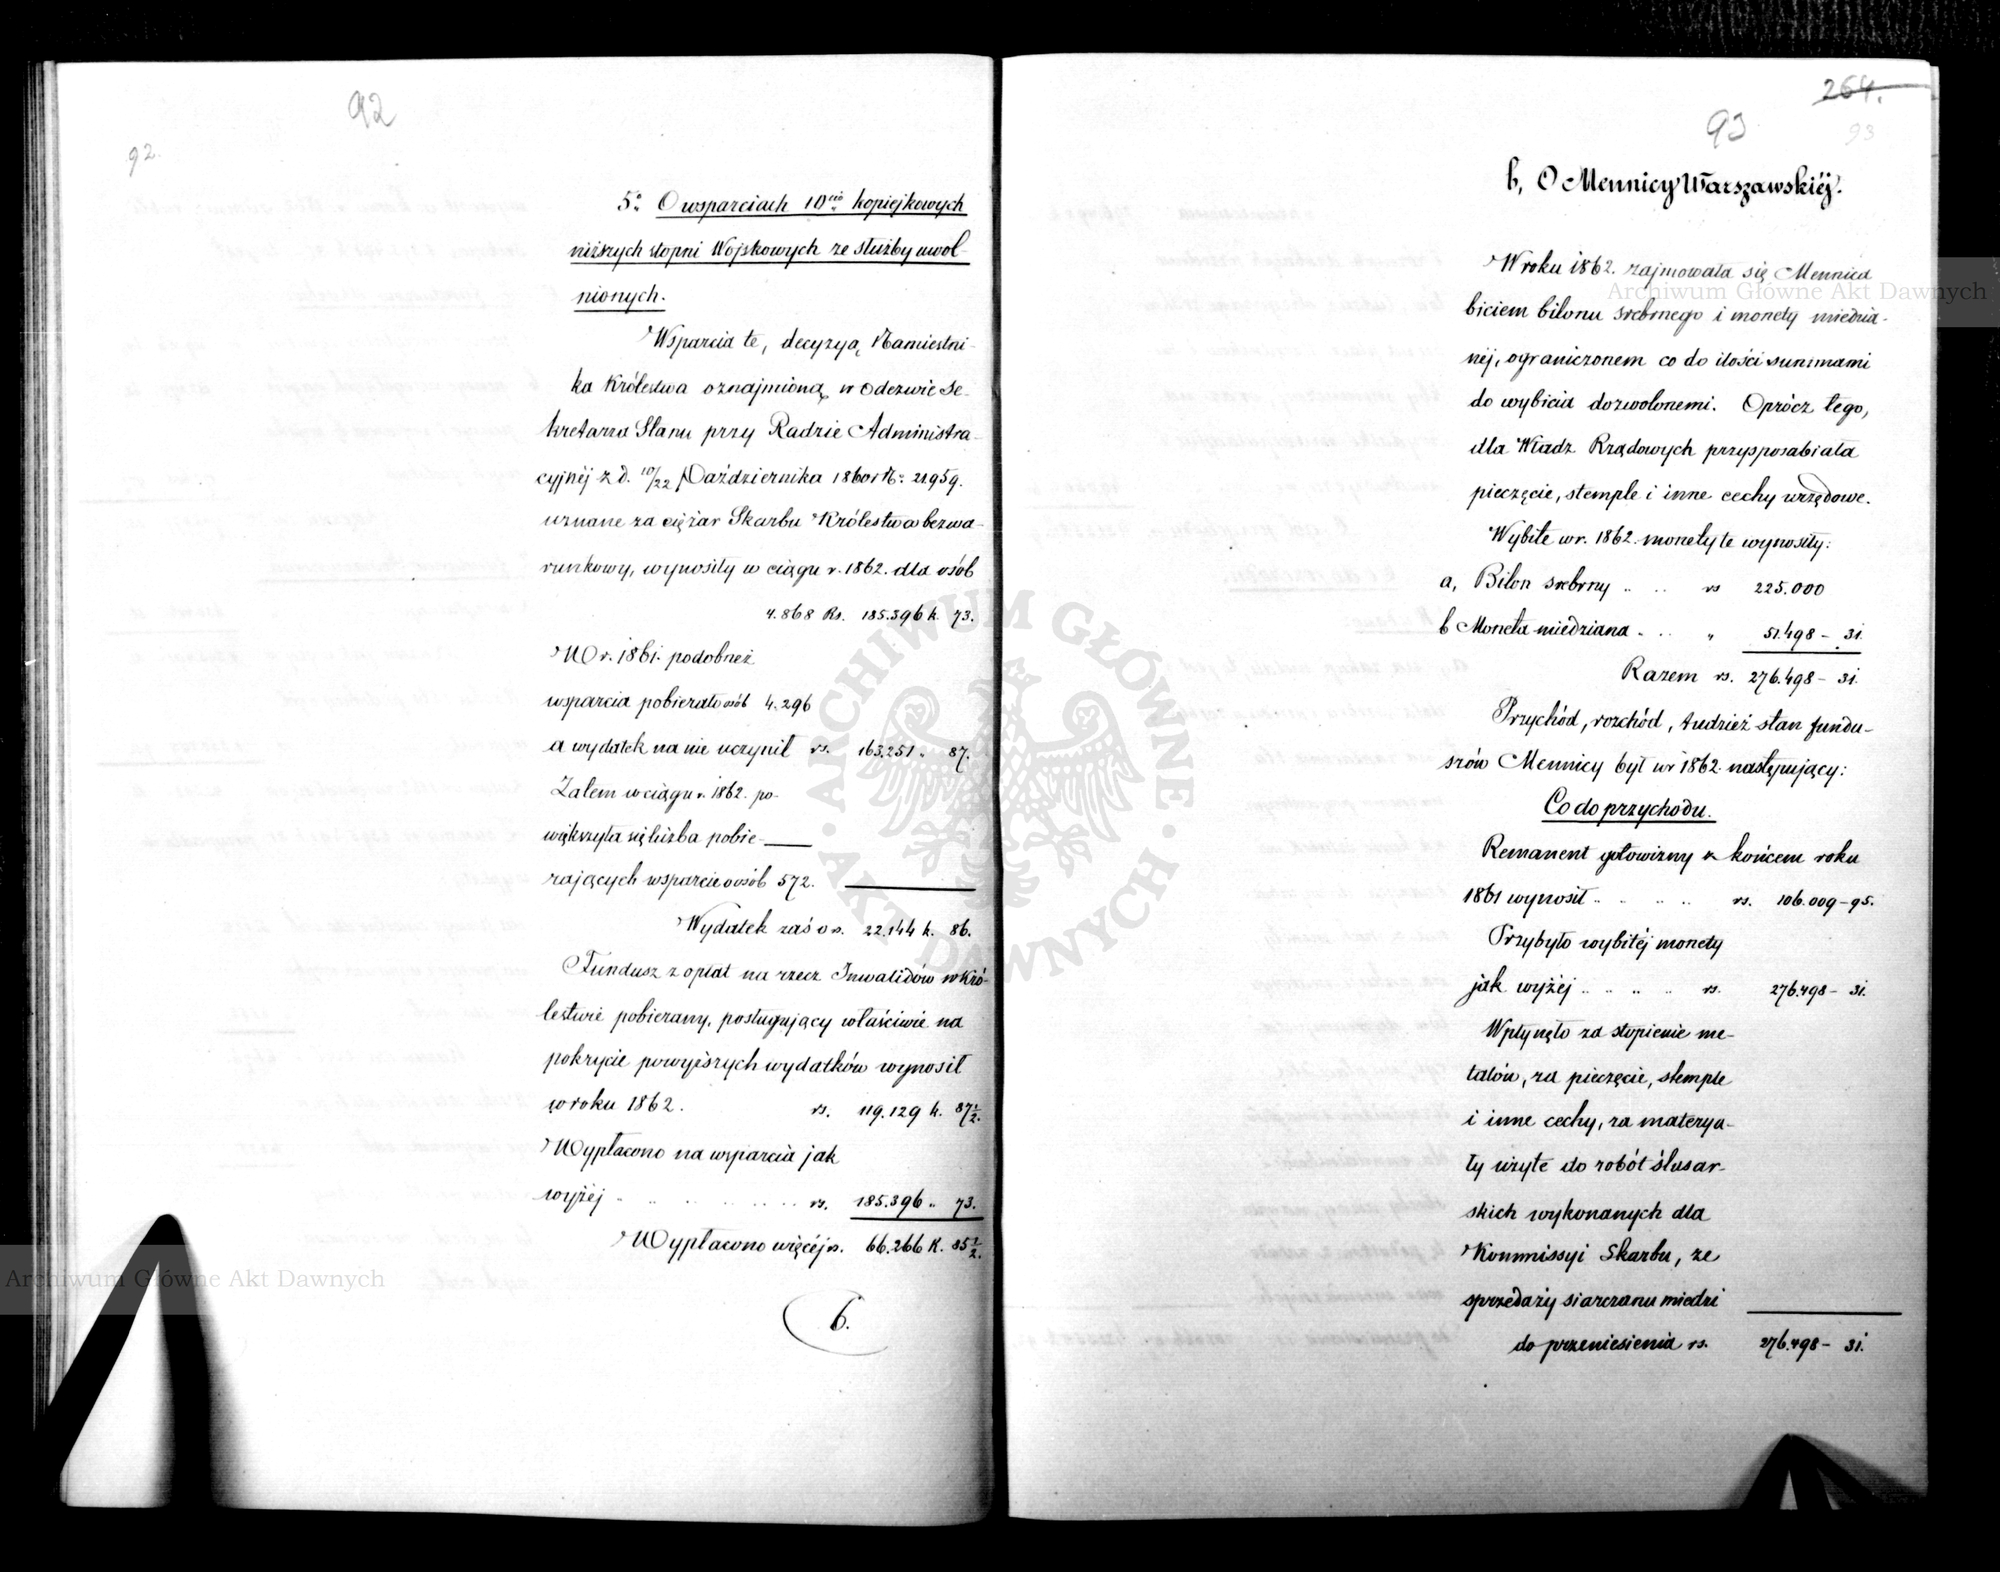 92
92.
5° O wsparciach 10cio kopiejkowych
niższych stopni Wojskowych ze służby uwol-
nionych.
Wsparcia te, decyzyą Namiestni-
ka Królestwa oznajmioną w Odezwie Se-
kretarza Stanu przy Radzie Administra-
cyjnéj z d. 10/22 Października 1860 r. N: 21959.
uznane za ciężar Skarbu Królestwa bezwa-
runkowy, wynosiły w ciągu r. 1862. dla osób
4.868 Rs. 185.396 k. 73.
W r. 1861. podobneż
wsparcia pobierało osób 4.296
a wydatek na nie uczynił rs. 163.251 „ 87.
Zatem w ciągu r. 1862. po-
większyła się liczba pobie-
rających wsparcie o osób 572.
Wydatek zaś o rs. 22.144 k. 86.
Fundusz z opłat na rzecz Inwalidów w Kró-
lestwie pobierany, posługujący właściwie na
pokrycie powyższych wydatków wynosił
w roku 1862. rs. 119.129 k. 87½.
Wypłacono na wsparcia jak
wyżéj - .. .. .. .. rs. 185.396 „ 73.
Wypłacono więcéj rs. 66.266 K. 85½.
6.
264.
93
93
b, O Mennicy Warszawskiéj.
W roku 1862. zajmowała się Mennica
biciem bilonu srebrnego i monety miedzia-
néj, ograniczonem co do ilości summami
do wybicia dozwolonemi. Oprócz tego,
dla Władz Rządowych przysposabiała
pieczęcie, stemple i inne cechy urzędowe.
Wybite w r. 1862. monety te wynosiły:
a, Bilon srebrny .. .. rs 225.000
b Moneta miedziana . .. „ 51.498 - 31.
Razem rs. 276.498 - 31.
Przychód, rozchód, tudzież stan fundu-
szów Mennicy był w r 1862. następujący:
Co do przychodu.
Remanent gotowizny z końcem roku
1861 wynosił .. .. .. .. rs. 106.009 - 95.
Przybyło wybitéj monety
jak wyżéj .. .. .. .. rs. 276.498 - 31.
Wpłynęło za stopienie me-
talów, za pieczęcie, stemple
i inne cechy, za materya-
ły użyte do robót ślusar-
skich wykonanych dla
Kommissyi Skarbu, ze
sprzedaży siarczanu miedzi
do przeniesienia rs. 276.498 - 31.
Archiwum Główne Akt Dawnych
Archiwum Główne Akt Dawnych
ARCHIWUM GŁÓWNE
AKT DAWNYCH